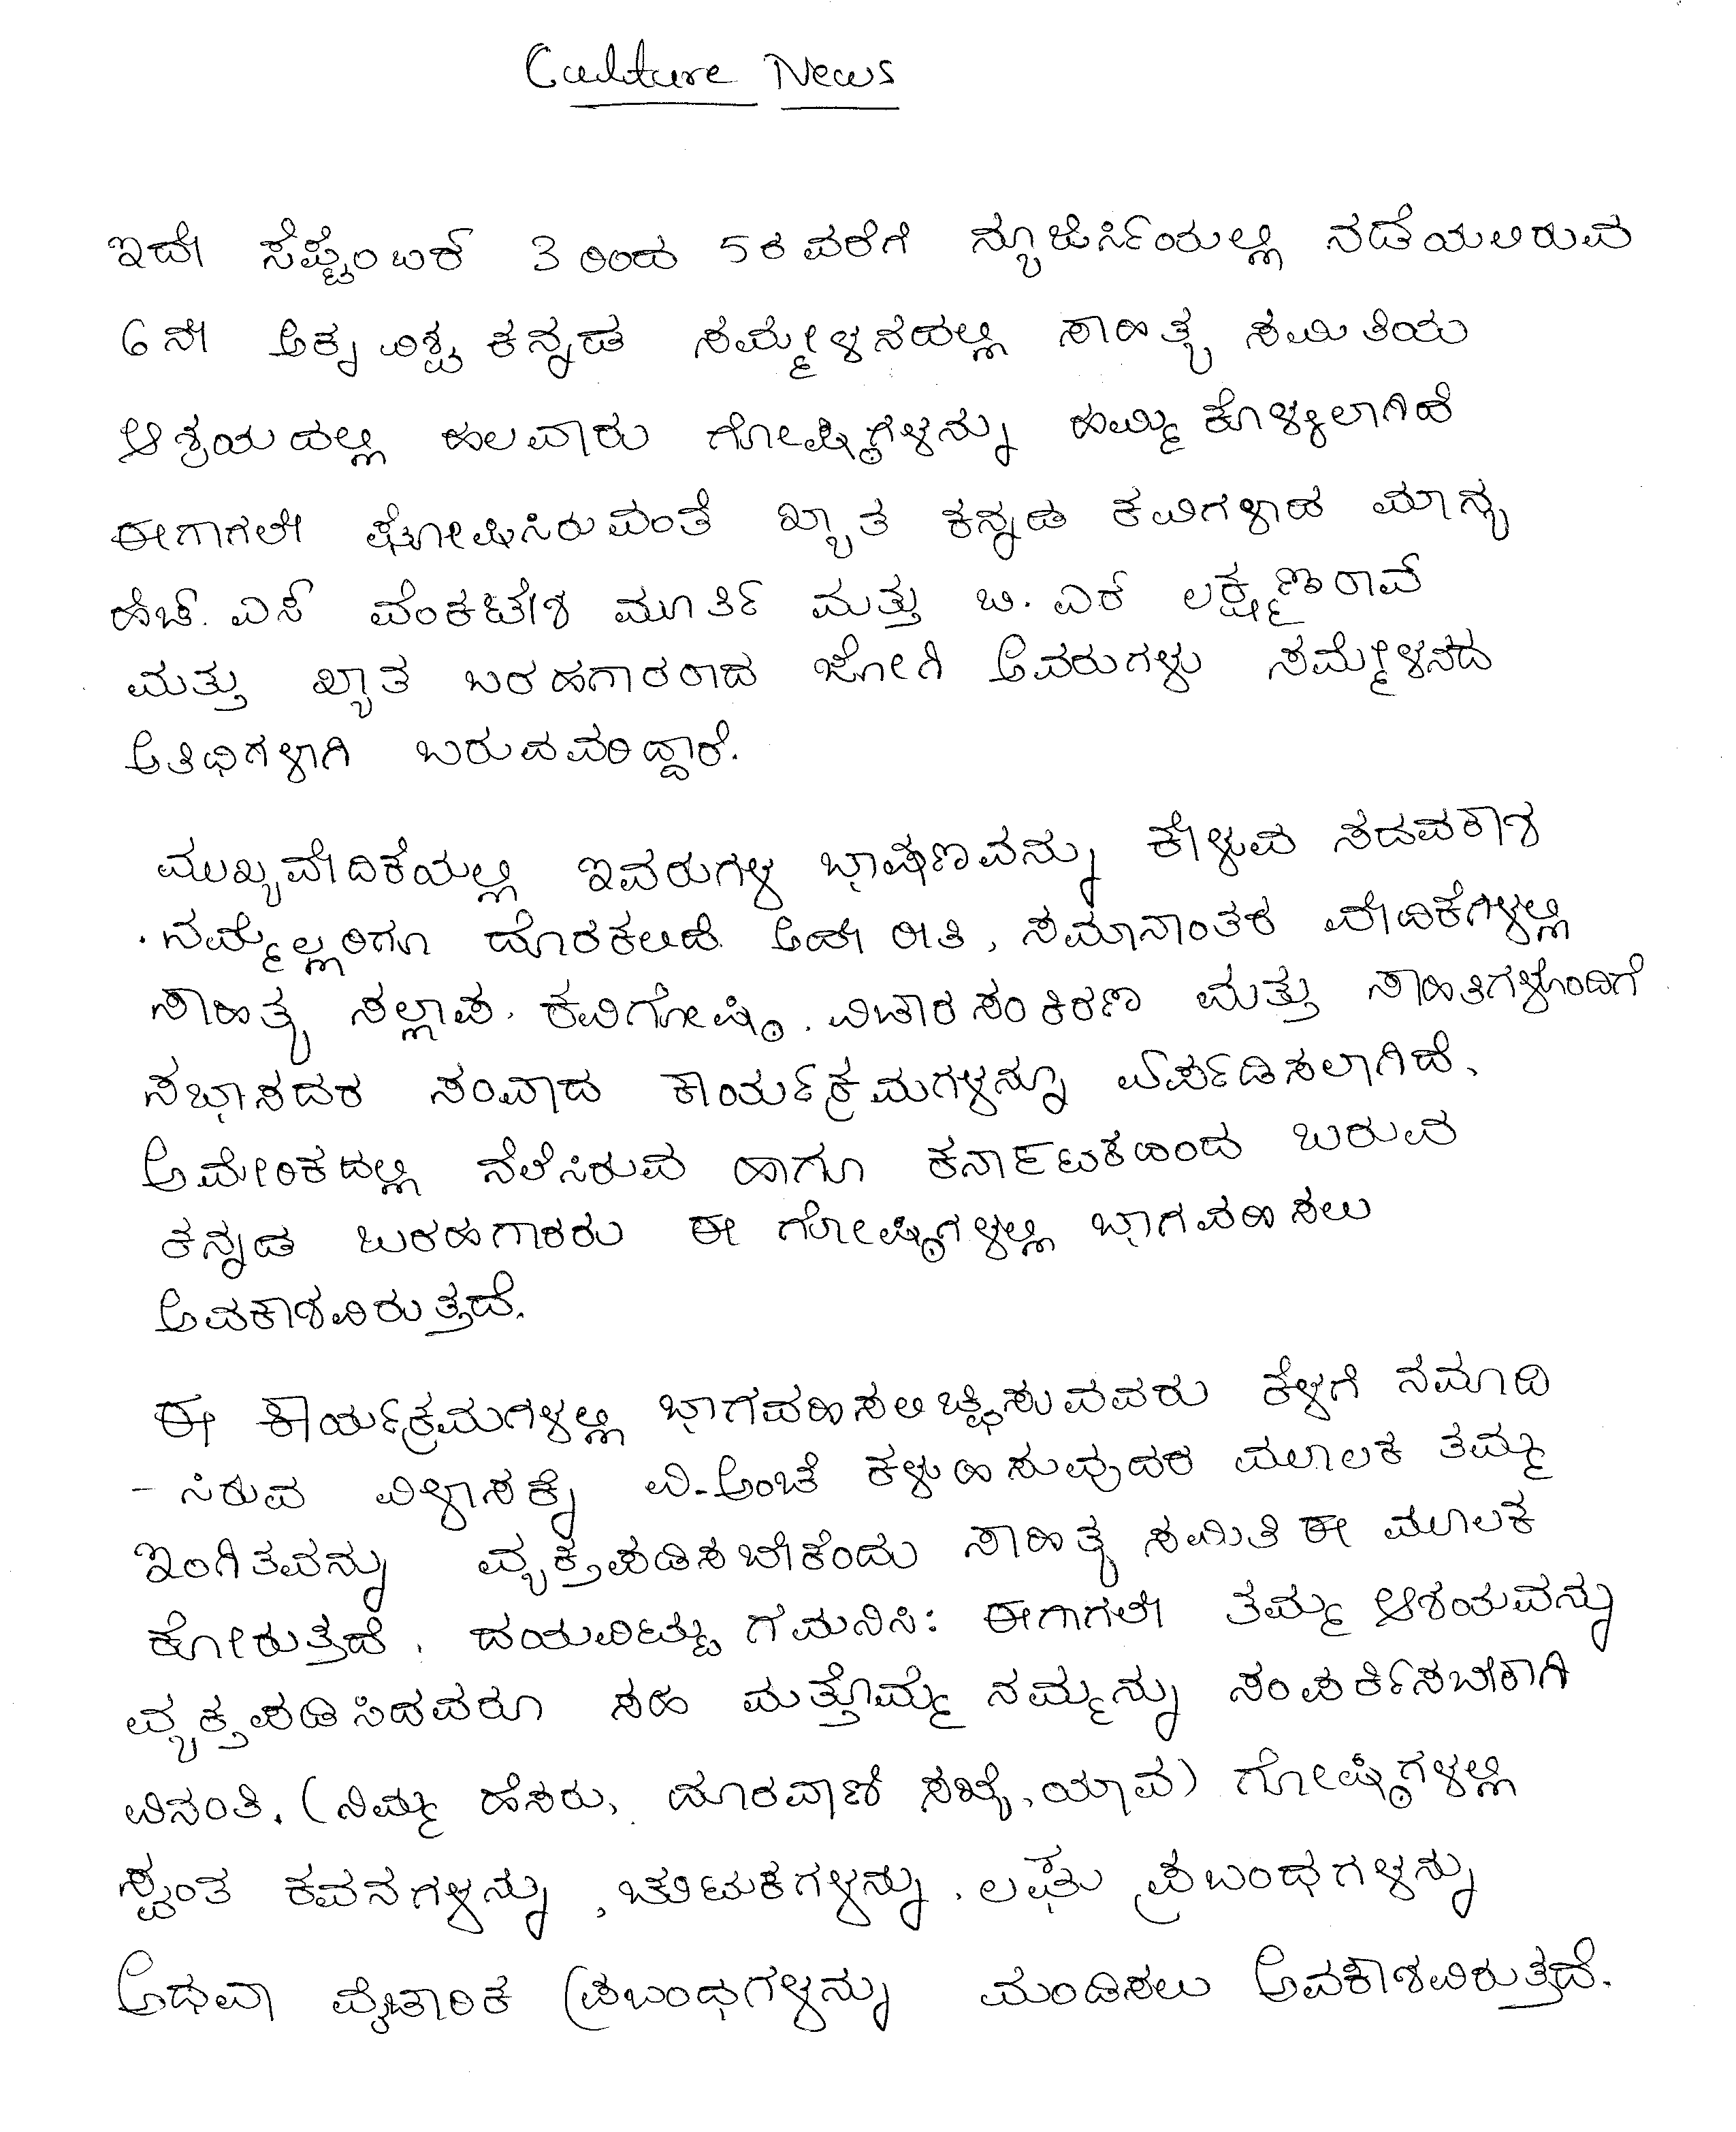 Culture News
ಇದೇ ಸೆಪ್ಟೆಂಬರ್ 3 ರಿಂದ 5ರ ವರೆಗೆ ನ್ಯೂಜೆರ್ಸಿಯಲ್ಲಿ ನಡೆಯಲಿರುವ
6ನೇ ಅಕ್ಕ ವಿಶ್ವ ಕನ್ನಡ ಸಮ್ಮೇಳನದಲ್ಲಿ ಸಾಹಿತ್ಯ ಸಮಿತಿಯ
ಆಶ್ರಯದಲ್ಲಿ ಹಲವಾರು ಗೋಷ್ಠಿಗಳನ್ನು ಹಮ್ಮಿಕೊಳ್ಳಲಾಗಿದೆ
ಈಗಾಗಲೇ ಘೋಷಿಸಿರುವಂತೆ ಖ್ಯಾತ ಕನ್ನಡ ಕವಿಗಳಾದ ಮಾನ್ಯ
ಹೆಚ್. ಎಸ್ ವೆಂಕಟೇಶ ಮೂರ್ತಿ ಮತ್ತು ಬಿ. ಎರ್ ಲಕ್ಷ್ಮಣರಾವ್
ಮತ್ತು ಖ್ಯಾತ ಬರಹಗಾರರಾದ ಜೋಗಿ ಅವರುಗಳು ಸಮ್ಮೇಳನದ
ಅತಿಥಿಗಳಾಗಿ ಬರುವವರಿದ್ದಾರೆ.
ಮುಖ್ಯವೇದಿಕೆಯಲ್ಲಿ ಇವರುಗಳ ಭಾಷಣವನ್ನು ಕೇಳುವ ಸದವಕಾಶ
ನಮ್ಮೆಲ್ಲರಿಗೂ ದೊರಕಲಿದೆ. ಅದೇ ರೀತಿ, ಸಮಾನಾಂತರ ವೇದಿಕೆಗಳಲ್ಲಿ
ಸಾಹಿತ್ಯ ಸಲ್ಲಾಪ, ಕವಿಗೋಷ್ಠಿ, ವಿಚಾರ ಸಂಕಿರಣ ಮತ್ತು ಸಾಹಿತಿಗಳೊಂದಿಗೆ
ಸಭಾಸದರ ಸಂವಾದ ಕಾರ್ಯಕ್ರಮಗಳನ್ನೂ ಏರ್ಪಡಿಸಲಾಗಿದೆ,
ಅಮೇರಿಕದಲ್ಲಿ ನೆಲೆಸಿರುವ ಹಾಗೂ ಕರ್ನಾಟಕದಿಂದ ಬರುವ
ಕನ್ನಡ ಬರಹಗಾರರು ಈ ಗೋಷ್ಠಿಗಳಲ್ಲಿ ಭಾಗವಹಿಸಲು
ಅವಕಾಶವಿರುತ್ತದೆ.
ಈ ಕಾರ್ಯಕ್ರಮಗಳಲ್ಲಿ ಭಾಗವಹಿಸಲಿಚ್ಛಿಸುವವರು ಕೆಳಗೆ ನಮೂದಿ
- ಸಿರುವ ವಿಳಾಸಕ್ಕೆ ವಿ-ಅಂಚೆ ಕಳುಹಿಸುವುದರ ಮೂಲಕ ತಮ್ಮ
ಇಂಗಿತವನ್ನು ವ್ಯಕ್ತಪಡಿಸಬೇಕೆಂದು ಸಾಹಿತ್ಯ ಸಮಿತಿ ಈ ಮೂಲಕ
ಕೋರುತ್ತದೆ. ದಯವಿಟ್ಟು ಗಮನಿಸಿ: ಈಗಾಗಲೇ ತಮ್ಮ ಆಶಯವನ್ನು
ವ್ಯಕ್ತಪಡಿಸಿದವರೂ ಸಹ ಮತ್ತೊಮ್ಮೆ ನಮ್ಮನ್ನು ಸಂಪರ್ಕಿಸಬೇಕಾಗಿ
ವಿನಂತಿ. (ನಿಮ್ಮ ಹೆಸರು, ದೂರವಾಣಿ ಸಖ್ಯೆ, ಯಾವ) ಗೋಷ್ಠಿಗಳಲ್ಲಿ
ಸ್ವಂತ ಕವನಗಳನ್ನು, ಚುಟುಕಗಳನ್ನು, ಲಘು ಪ್ರಬಂಧಗಳನ್ನು
ಅಥವಾ ವೈಚಾರಿಕ ಪ್ರಬಂಧಗಳನ್ನು ಮಂಡಿಸಲು ಅವಕಾಶವಿರುತ್ತದೆ.